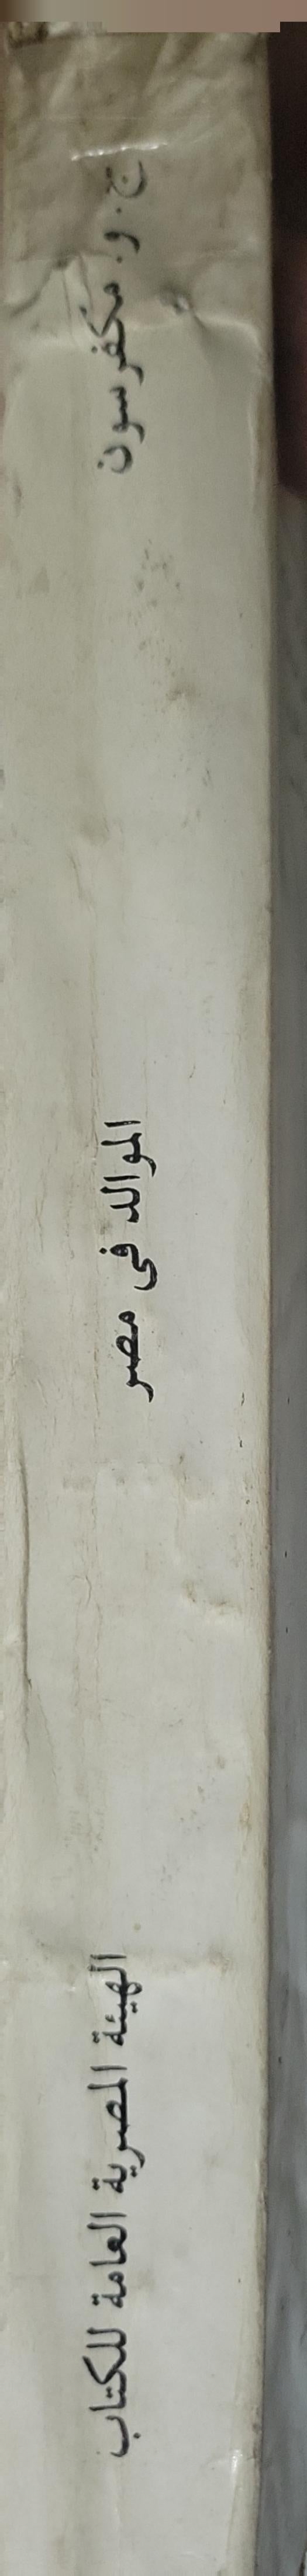 ج. و. مكفرسون
الموالد فى مصر
الهيئة المصرية العامة للكتاب